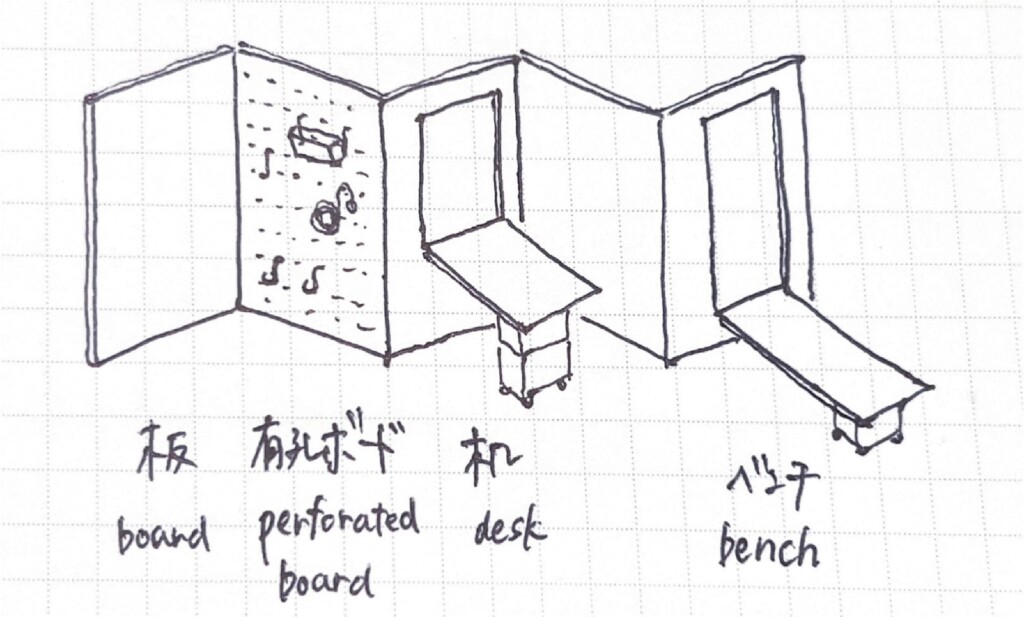 板
board
有孔ボード
perforated
board
机
desk
ベンチ
bench